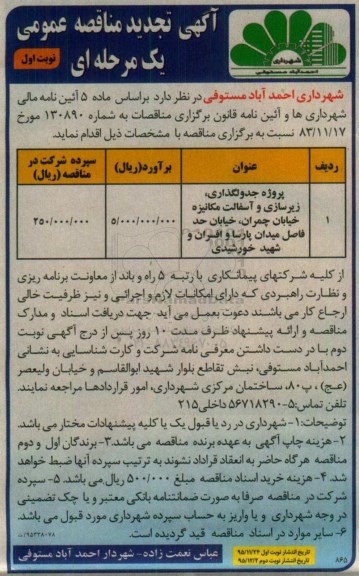 آگهی تجدید مناقصه عمومی
یک مرحله ای
نوبت اول
شهرداری
احمدآباد مستوفی
شهرداری احمد آباد مستوفی در نظر دارد براساس ماده ۵ آئین نامه مالی
شهرداری ها و آئین نامه قانون برگزاری مناقصات به شماره ۱۳۰۸۹۰ مورخ
۸۳/۱۱/۱۷ نسبت به برگزاری مناقصه با مشخصات ذیل اقدام نماید.
ردیف عنوان برآورد(ریال) سپرده شرکت در مناقصه (ریال)
۱ پروژه جدولگذاری، زیرسازی و آسفالت مکانیزه خیابان چمران، خیابان حد فاصل میدان پارسا و افسران و شهید خورشیدی ۵/۰۰۰/۰۰۰/۰۰۰ ۲۵۰/۰۰۰/۰۰۰
از کلیه شرکتهای پیمانکاری با رتبه ۵ راه و باند از معاونت برنامه ریزی
و نظارت راهبردی که دارای امکانات لازم و اجرائی و نیز ظرفیت خالی
ارجاع کار می باشند دعوت بعمل می آید جهت دریافت اسناد و مدارک
مناقصه و ارائه پیشنهاد ظرف مدت ۱۰ روز پس از درج آگهی نوبت
دوم با در دست داشتن معرفی نامه شرکت و کارت شناسایی به نشانی
احمدآباد مستوفی، نبش تقاطع بلوار شهید ابوالقاسم و خیابان ولیعصر
(عج)، پ۸۰، ساختمان مرکزی شهرداری، امور قراردادها مراجعه نمایند.
تلفن تماس:۵-۵۶۷۱۸۲۹۰ داخلی۲۱۵
توضیحات:۱- شهرداری در رد یا قبول یک یا کلیه پیشنهادات مختار می باشد.
۲- هزینه چاپ آگهی به عهده برنده مناقصه می باشد.۳- برندگان اول و دوم
مناقصه هرگاه حاضر به انعقاد قراداد نشوند به ترتیب سپرده آنها ضبط خواهد
شد. ۴- هزینه خرید اسناد مناقصه مبلغ ۵۰۰/۰۰۰ ریال می باشد. ۵- سپرده
شرکت در مناقصه صرفا به صورت ضمانتنامه بانکی معتبر و یا چک تضمینی
در وجه شهرداری و یا واریز به حساب سپرده شهرداری مورد قبول می باشد.
۶- سایر موارد در اسناد مناقصه قید گردیده است.
تاریخ انتشار نوبت اول ۹۵/۱۱/۲۶
تاریخ انتشار نوبت دوم ۹۵/۱۲/۳
عباس نعمت زاده - شهردار احمد آباد مستوفی
۸۶۵